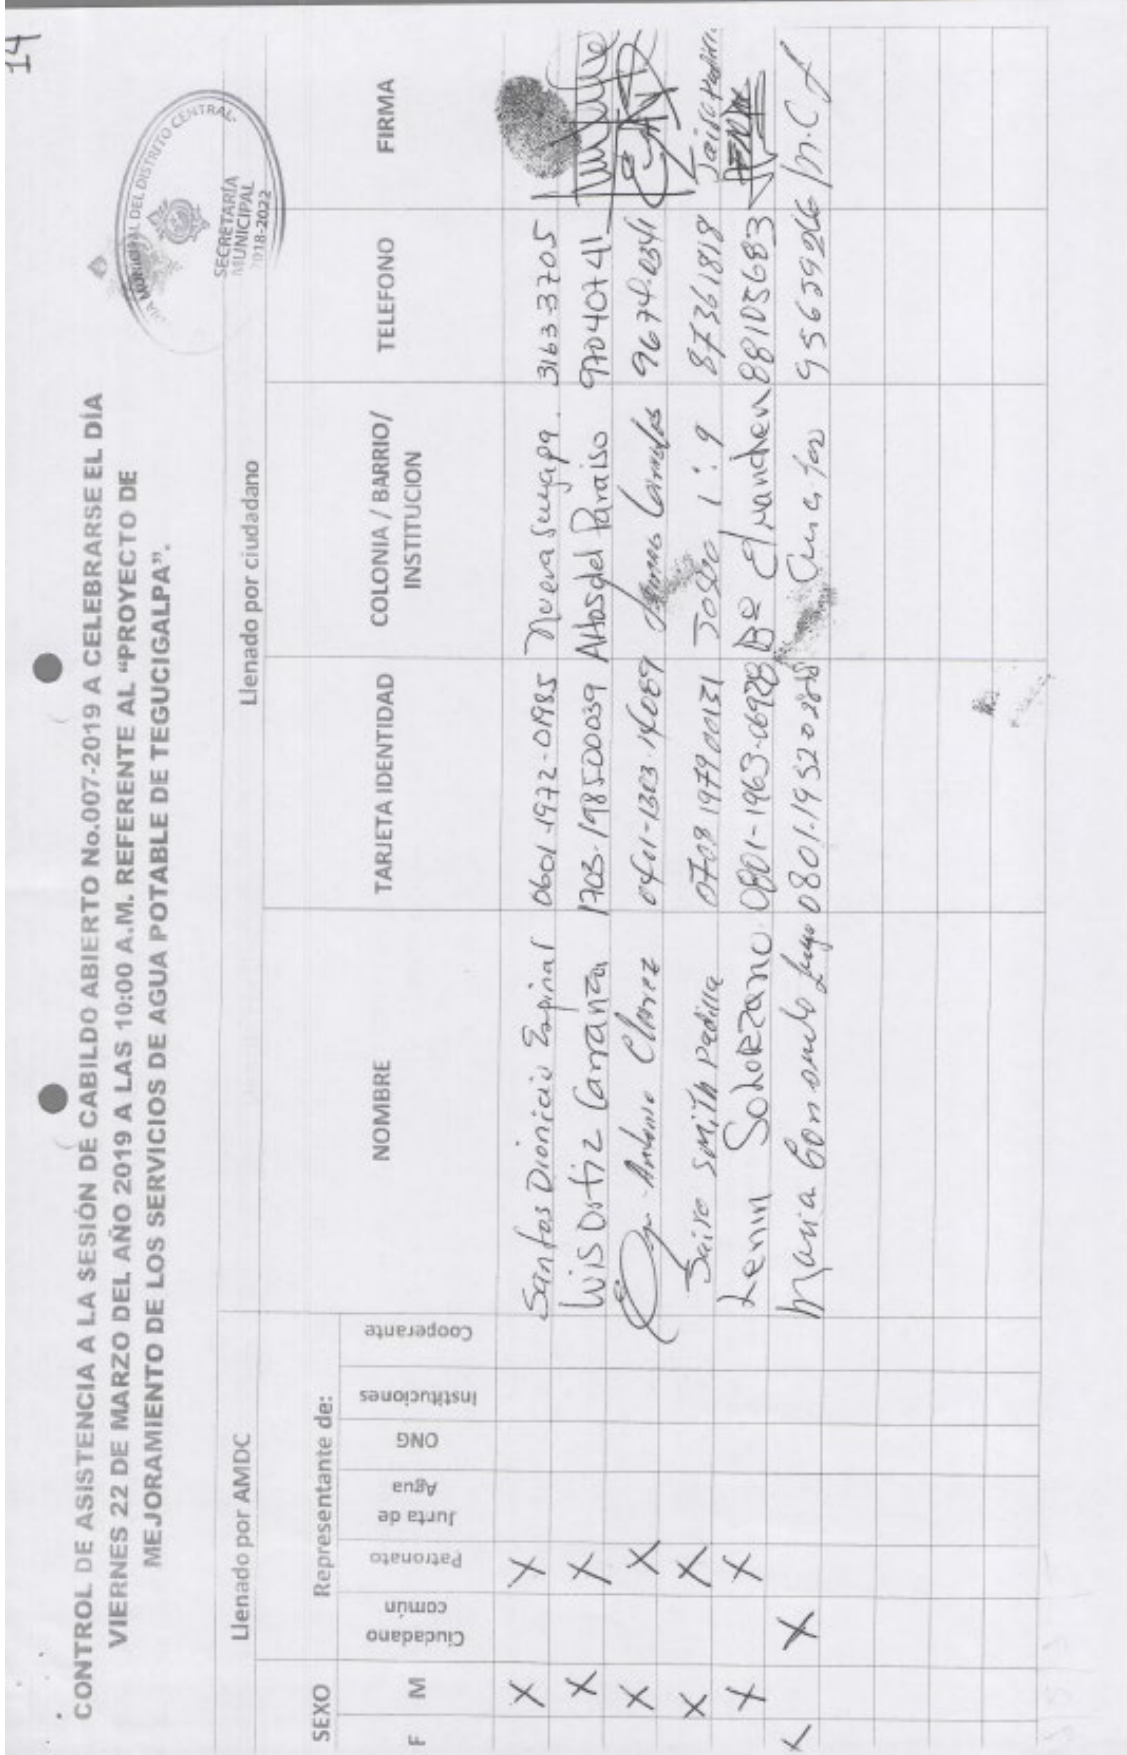 14
CONTROL DE ASISTENCIA A LA SESIÓN DE CABILDO ABIERTO No.007-2019 A CELEBRARSE EL DÍA
VIERNES 22 DE MARZO DEL AÑO 2019 A LAS 10:00 A.M. REFERENTE AL "PROYECTO DE
MEJORAMIENTO DE LOS SERVICIOS DE AGUA POTABLE DE TEGUCIGALPA".
MUNICIPAL DEL DISTRITO CENTRAL
SECRETARÍA
MUNICIPAL
2018-2022
Llenado por AMDC Llenado por ciudadano
SEXO Representante de:
F M Ciudadano común Patronato Junta de Agua ONG Instituciones Cooperante NOMBRE TARJETA IDENTIDAD COLONIA / BARRIO/ INSTITUCION TELEFONO FIRMA
X X Santos Dionicio Espinal 0601-1972-01985 Nueva Suyapa. 3163-3705
X X Luis Ortiz Carranza 1703-198500039 Altos del Paraiso 97040741
X X Antonio 9674-0341
X X Jairo Smith Padilla 0708 1979 00131 87361818 Jairo Padilla
X X Lenin Solorzano 0801-1963-06928 Bo El Manchen 88105683
X X Maria 0801-1952 95659266 M.C.